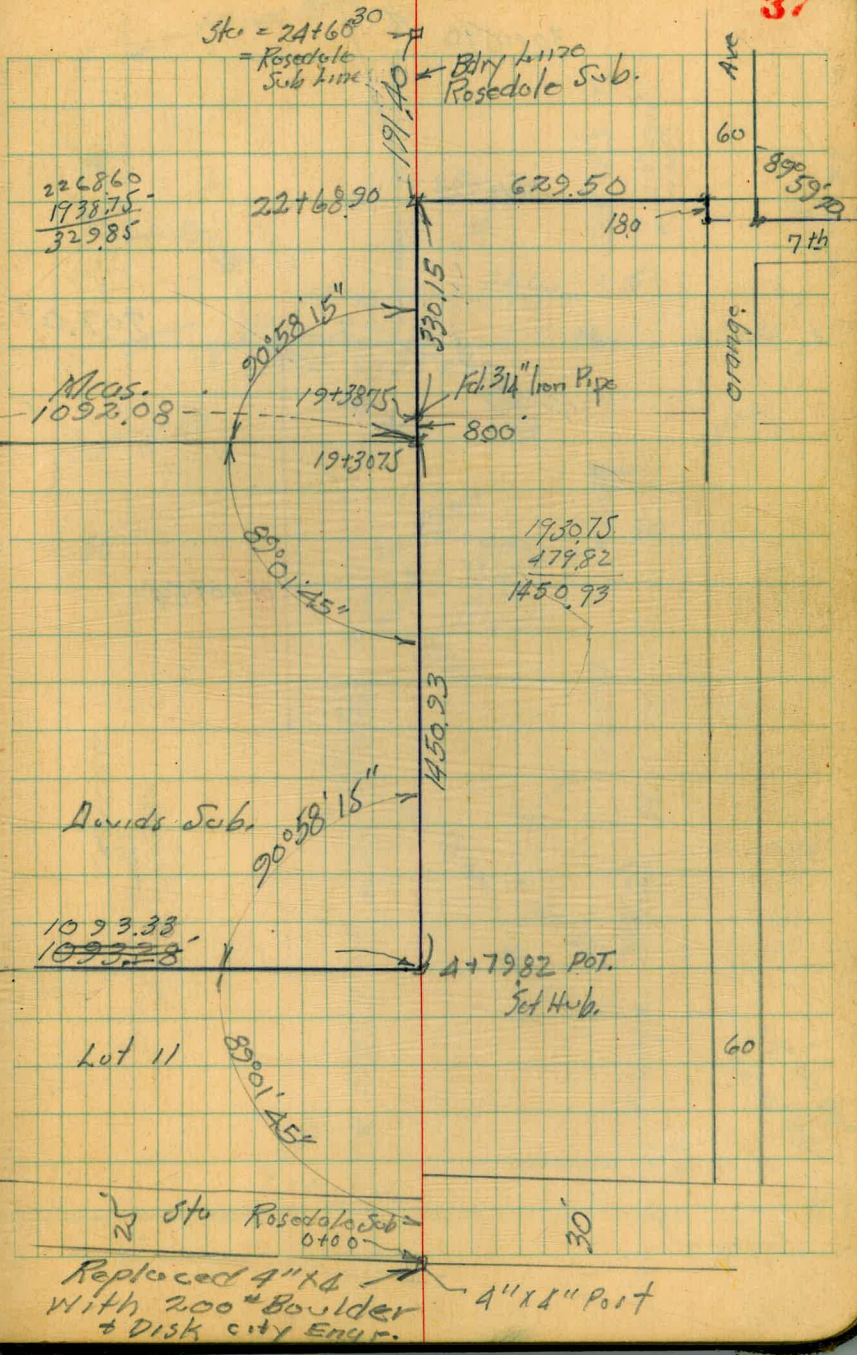 37
Sta = 24+60³⁰
= Rosedale
Sub Line
191.40
Bdry Line
Rosedale Sub.
Ave
60
89°59'20"
2268.60
1938.75
329.85
22+68.90
629.50
18.0
7th
330.15
90°58'15"
Orange
Meas.
1092.08
19+38.75
Fd. 3/4" Iron Pipe
8.00
19+30.75
89°01'45"
1930.75
479.82
1450.93
1450.93
Davids Sub.
90°58'15"
1093.33
1093.28
4+79.82 POT.
Set Hub.
Lot 11
60
89°01'45"
25'
Sta
Rosedale Sub
0+00
30'
Replaced 4"x4
with 200# Boulder
+ Disk City Engr.
4"x4" Post